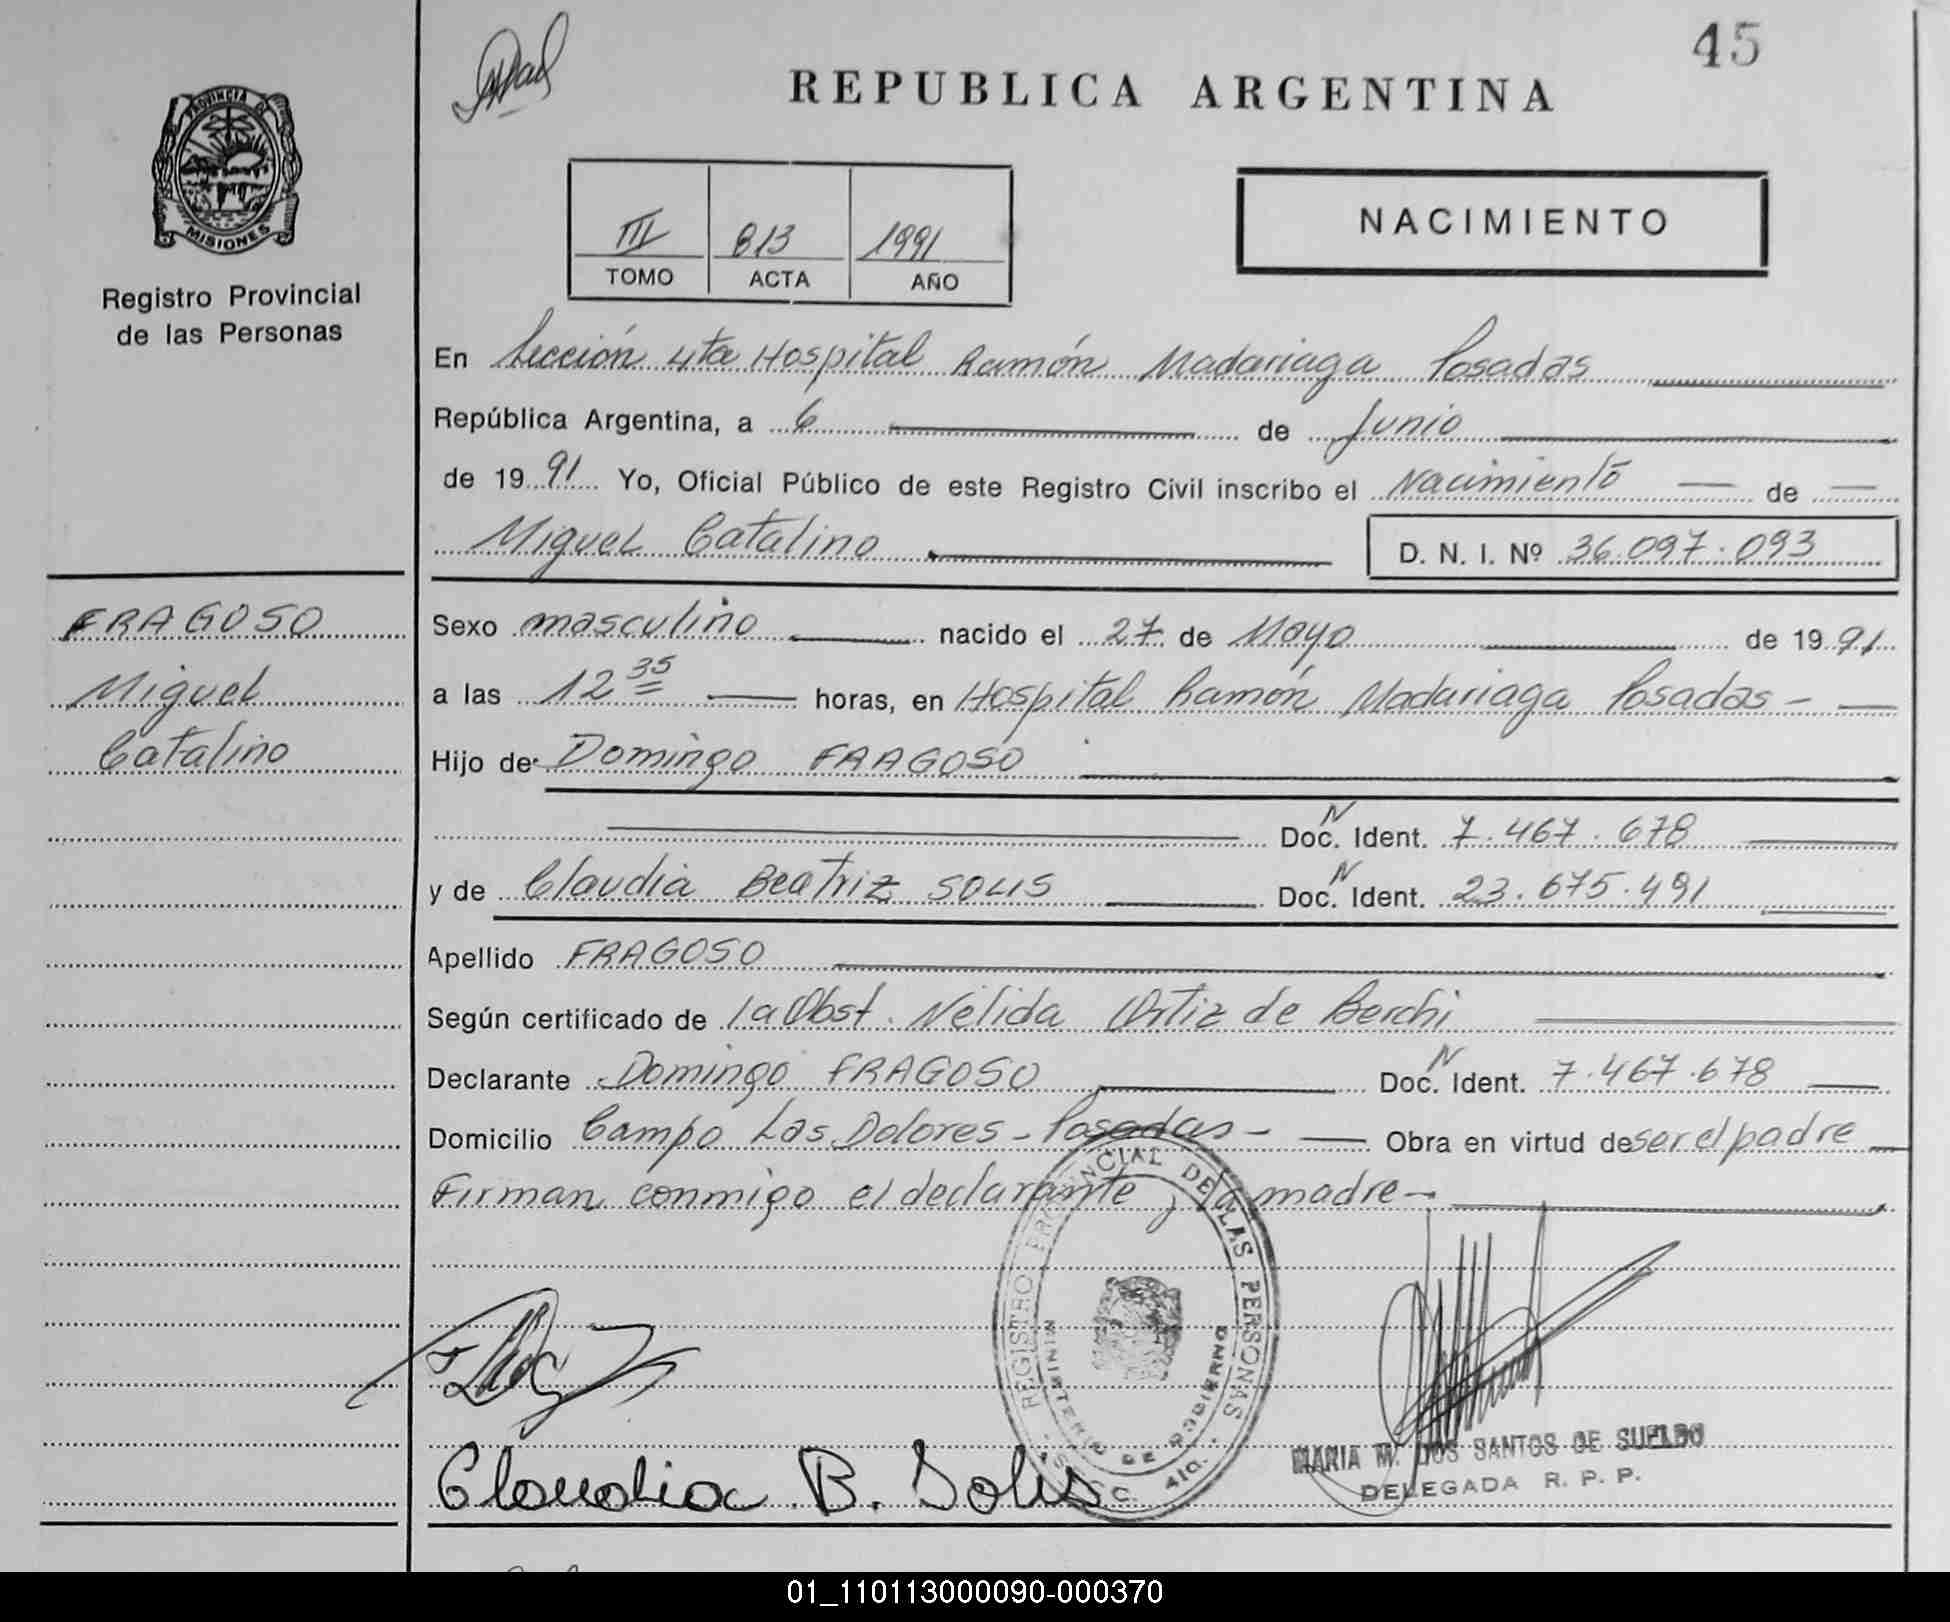 45
REPUBLICA ARGENTINA
PROVINCIA DE
MISIONES
Registro Provincial
de las Personas
III 813 1991
TOMO ACTA AÑO
NACIMIENTO
En Sección 4ta Hospital Ramón Madariaga Posadas
República Argentina, a 6 de Junio
de 1991 Yo, Oficial Público de este Registro Civil inscribo el Nacimiento de
Miguel Catalino D. N. I. Nº 36.097.093
FRAGOSO
Miguel
Catalino
Sexo masculino nacido el 27 de Mayo de 1991
a las 12 35 horas, en Hospital Ramón Madariaga Posadas -
Hijo de Domingo FRAGOSO
Doc. N Ident. 7.467.678
y de Claudia Beatriz SOLIS Doc. N Ident. 23.675.491
Apellido FRAGOSO
Según certificado de la Obst. Nélida Ortiz de Berchi
Declarante Domingo FRAGOSO Doc. N Ident. 7.467.678
Domicilio Campo Las Dolores - Posadas - Obra en virtud de ser el padre
Firman conmigo el declarante y la madre -
REGISTRO PROVINCIAL DE LAS PERSONAS
MINISTERIO DE GOBIERNO
SECC. 4ta.
Claudia B. Solis
MARIA M. DOS SANTOS DE SUELDO
DELEGADA R. P. P.
01_110113000090-000370